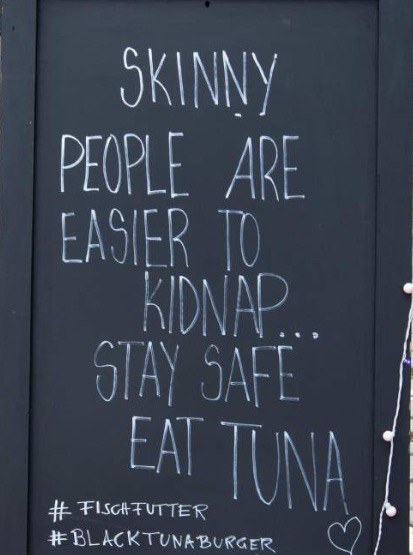 SKINNY
PEOPLE ARE
EASIER TO
KIDNAP...
STAY SAFE
EAT TUNA
# FISCHFUTTER
#BLACKTUNABURGER